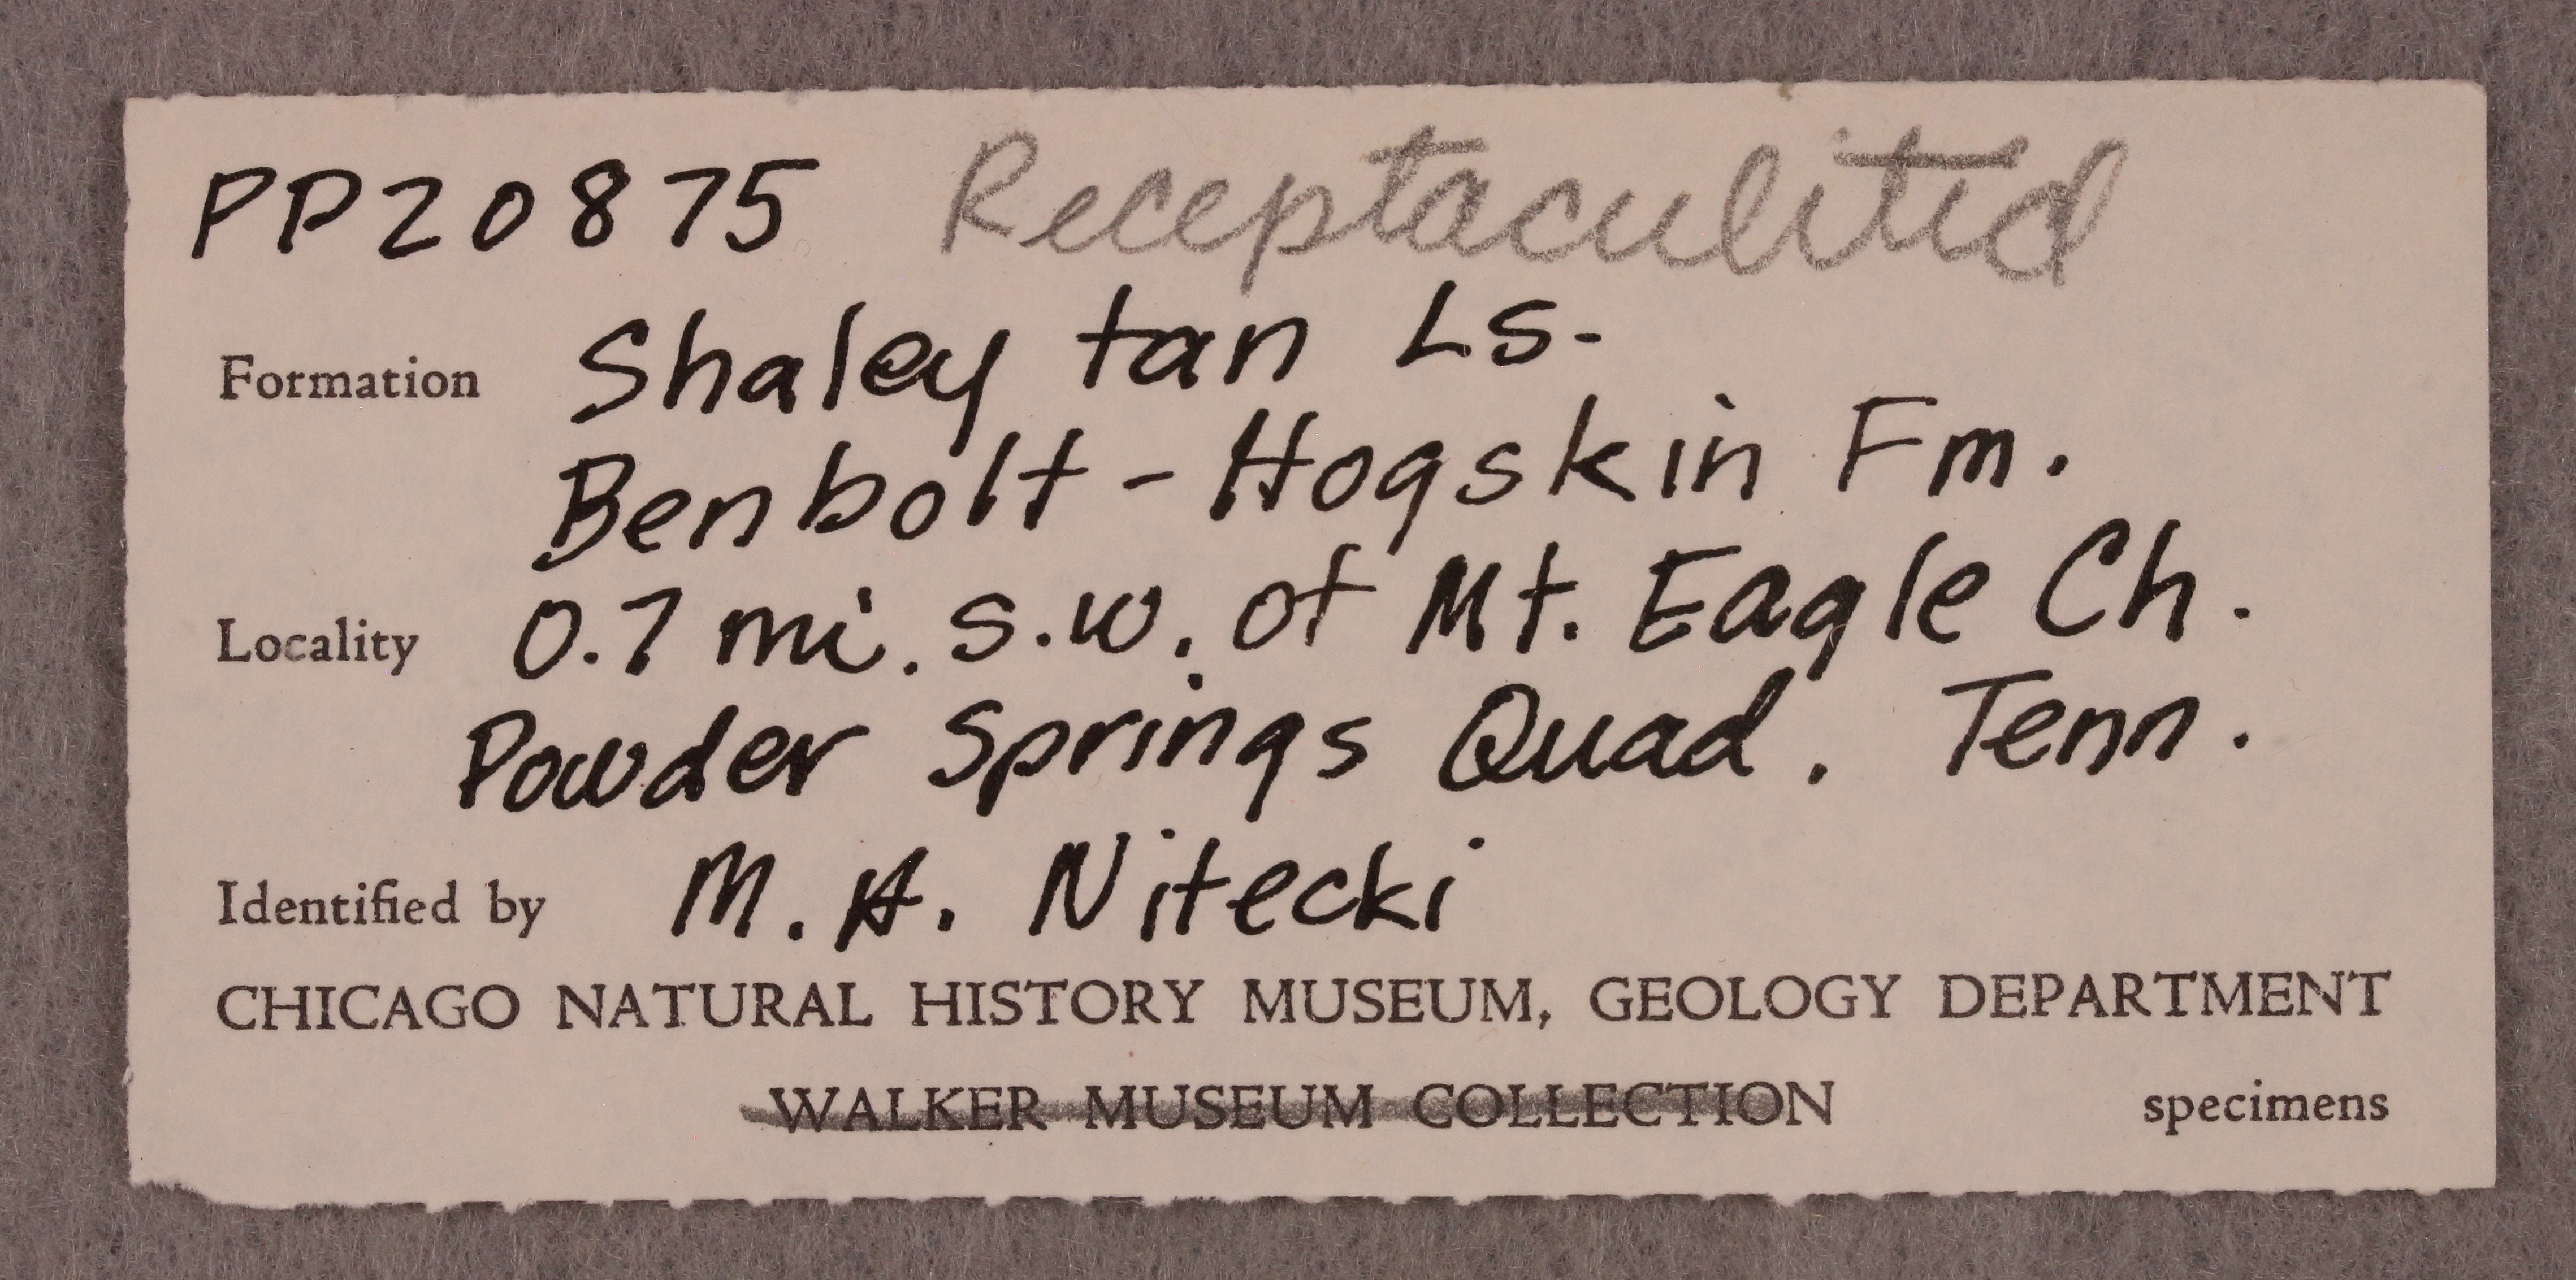 PP20875 Receptaculitid
Formation Shaley tan Ls.
Benbolt - Hogskin Fm.
Locality 0.7 mi. s.w. of Mt. Eagle Ch.
Powder Springs Quad. Tenn.
Identified by M. H. Nitecki
CHICAGO NATURAL HISTORY MUSEUM, GEOLOGY DEPARTMENT
WALKER MUSEUM COLLECTION specimens